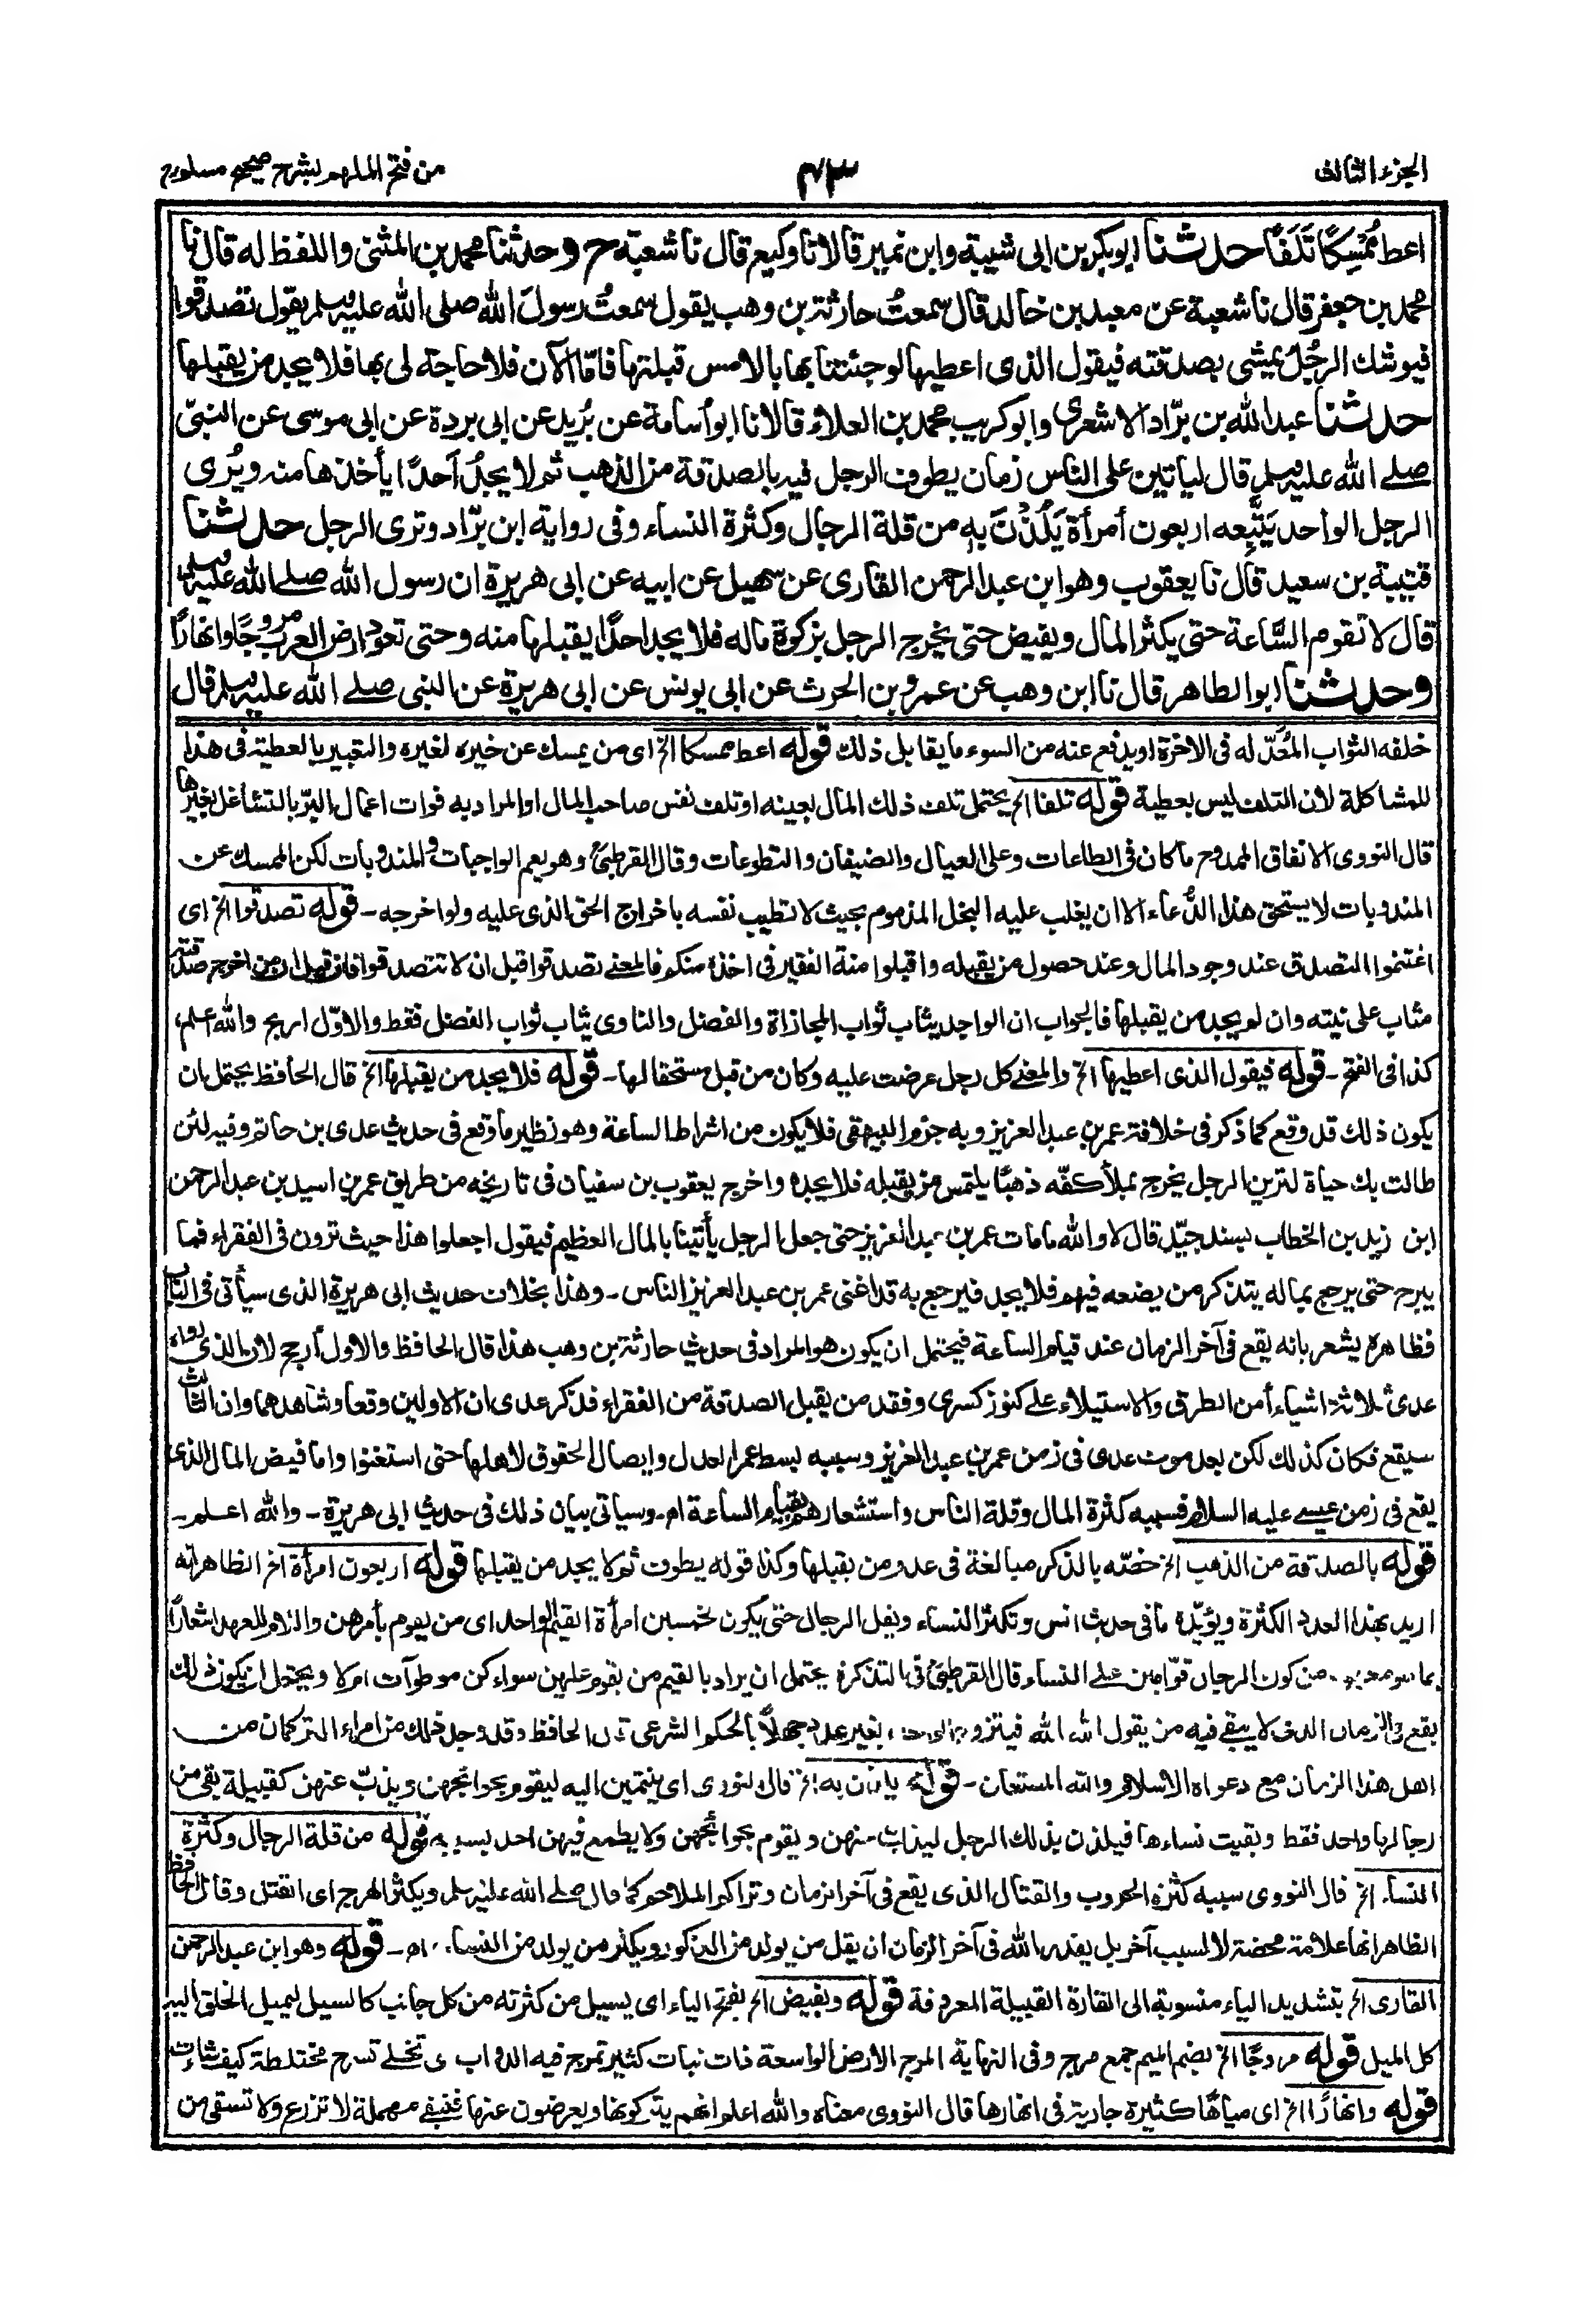 الجزء الثالث
٤٣
من فتح الملهم بشرح صحيح مسلم
اعط مُمْسِكًا تَلَفًا حدثنا ابو بكر بن ابى شيبة وابن نمير قالا نا وكيع قال نا شعبة ح وحدثنا محمد بن المثنى واللفظ له قال نا
محمد بن جعفر قال نا شعبة عن معبد بن خالد قال سمعتُ حارثة بن وهب يقول سمعتُ رسولَ الله صلى الله عليه وسلم يقول تصدقوا
فيوشك الرجُلُ يمشى بصدقته فيقول الذى اعطيها لو جئتنا بها بالامس قبلتها فامّا الآن فلا حاجة لى بها فلا يجد من يقبلها
حدثنا عبد الله بن برّاد الاشعرى وابو كريب محمد بن العلاء قالا نا ابو اُسامة عن بُريد عن ابى بردة عن ابى موسى عن النبىّ
صلے الله عليه وسلم قال لياتين على الناس زمان يطوف الرجل فيه بالصدقة من الذهب ثم لا يجدُ اَحدًا يأخذها منه ويُرى
الرجل الواحد يَتْبعه اربعون أمرأة يَلُذْنَ بِه من قلة الرجال وكثرة النساء وفى رواية ابن برّاد وترى الرجل حدثنا
قتيبة بن سعيد قال نا يعقوب وهو ابن عبد الرحمن القارى عن سهيل عن ابيه عن ابى هريرة ان رسول الله صلے الله عليه وسلم
قال لا تقوم السَّاعة حتى يكثر المال ويفيض حتى يخرج الرجل بزكوة ماله فلا يجد احدًا يقبلها منه وحتى تعود ارض العرب مروجًا وانهارًا
وحدثنا ابو الطاهر قال نا ابن وهب عن عمرو بن الحرث عن ابى يونس عن ابى هريرة عن النبى صلے الله عليه وسلم قال
خلفه الثواب المُعَدّ له فى الاخرة او يدفع عنه من السوء ما يقابل ذلك قوله اعط ممسكا الخ اى من يمسك عن خيره لغيره والتعبير بالعطية فى هذا
للمشاكلة لان التلف ليس بعطية قوله تلفا الخ يحتمل تلف ذلك المال بعينه او تلف نفس صاحب المال او المراد به فوات اعمال البرّ بالتشاغل بغيرها
قال النووى الانفاق الممدوح ما كان فى الطاعات وعلى العيال والضيفان والتطوعات وقال القرطبىؒ وهو يعم الواجبات والمندوبات لكن الممسك عن
المندوبات لا يستحق هذا الدُّعاء الا ان يغلب عليه البخل المذموم بحيث لا تطيب نفسه باخراج الحق الذى عليه ولو اخرجه - قوله تصدقوا الخ اى
اغتنموا التصدق عند وجود المال وعند حصول من يقبله واقبلوا منة الفقير فى اخذه منكم فالمعنے تصدقوا قبل ان لا تتصدقوا فان قيل ان من اخرج صدقته
مثاب على نيته وان لم يجد من يقبلها فالجواب ان الواجد يثاب ثواب المجازاة والفضل والناوى يثاب ثواب الفضل فقط والاوّل اربح والله اعلم،
كذا فى الفتح - قوله فيقول الذى اعطيها الخ والمعنے كل رجل عرضت عليه وكان من قبل مستحقا لها - قوله فلا يجد من يقبلها الخ قال الحافظ يحتمل ان
يكون ذلك قد وقع كما ذكر فى خلافة عمر بن عبد العزيز وبه جزم البيهقى فلا يكون من اشراط الساعة وهو نظير ما وقع فى حديث عدى بن حاتم وفيه لئن
طالت بك حياة لترين الرجل يخرج بملأ كفّه ذهبًا يلتمس من يقبله فلا يجده واخرج يعقوب بن سفيان فى تاريخه من طريق عمر بن اسيد بن عبد الرحمن
ابن زيد بن الخطاب بسند جيّد قال لا والله ما مات عمر بن عبد العزيز حتى جعل الرجل يأتينا بالمال العظيم فيقول اجعلوا هذا حيث ترون فى الفقراء فما
يبرح حتى يرجع بماله يتذكر من يضعه فيهم فلا يجد فيرجع به قد اغنى عمر بن عبد العزيز الناس - وهذا بخلاف حديث ابى هريرة الذى سيأتى فى الباب
فظاهره يشعر بانه يقع فى آخر الزمان عند قيام الساعة فيحتمل ان يكون هو المراد فى حديث حارثة بن وهب هذا قال الحافظ والاول أرجح لان الذى رواه
عدى ثلاثة اشياء أمن الطرق والاستيلاء علے كنوز كسرى وفقد من يقبل الصدقة من الفقراء فذكر عدى ان الاولين وقعا وشاهدهما وان الثالث
سيقع فكان كذلك لكن بعد موت عدى فى زمن عمر بن عبد العزيز وسببه بسط عمر العدل وايصال الحقوق لاهلها حتى استغنوا واما فيض المال الذى
يقع فى زمن عيسے عليه السلام فسببه كثرة المال وقلة الناس واستشعارهم بقيام الساعة اه - وسياتى بيان ذلك فى حديث ابى هريرة - والله اعلم -
قوله بالصدقة من الذهب الخ خصّه بالذكر مبالغة فى عدم من يقبلها وكذا قوله يطوف ثم لا يجد من يقبلها قوله اربعون امرأة الخ الظاهر انه
اريد بهذا العدد الكثرة ويؤيّده ما فى حديث انس وتكثر النساء ويقل الرجال حتى يكون لخمسين امرأة القيّم الواحد اى من يقوم بأمرهن واللام للعهد اشعارًا
بما هو معهود من كون الرجال قوّامين علے النساء قال القرطبىؒ فى التذكرة يحتمل ان يراد بالقيم من يقوم عليهن سواء كن موطوآت ام لا ويحتمل ان يكون ذلك
يقع فى الزمان الذى لا يبقے فيه من يقول الله الله فيتزوج الواحد بغير عدد جهلًا بالحكم الشرعى قال الحافظ وقد وجد ذلك من امراء التركمان من
اهل هذا الزمان مع دعواه الاسلام والله المستعان - قوله يلذن به الخ قال النووى اى ينتمين اليه ليقوم بحوائجهن ويذبّ عنهن كقبيلة بقى من
رجالها واحد فقط وبقيت نساءها فيلذن بذلك الرجل ليذب عنهن ويقوم بحوائجهن ولا يطمع فيهن احد بسببه قوله من قلة الرجال وكثرة
النساء الخ قال النووى سببه كثرة الحروب والقتال الذى يقع فى آخر الزمان وتراكم الملاحم كما قال صلے الله عليه وسلم ويكثر الهرج اى القتل وقال الحافظ
الظاهر انها علامة محضة لا لسبب آخر بل يقدر الله فى آخر الزمان ان يقل من يولد من الذكور ويكثر من يولد من النساء، اه - قوله وهو ابن عبد الرحمن
القارى الخ بتشديد الياء منسوبة الى القارة القبيلة المعروفة قوله ويفيض الخ بفتح الياء اى يسيل من كثرته من كل جانب كالسيل ليميل الخلق اليه
كل الميل قوله مروجًا الخ بضم الميم جمع مرج وفى النهاية المرج الارض الواسعة ذات نبات كثير تمرج فيه الدواب اى تخلے تسرح مختلطة كيف شاءت
قوله وانهارًا الخ اى مياهًا كثيرة جارية فى انهارها قال النووى معناه والله اعلم انهم يتركونها ويعرضون عنها فتبقے مهملة لا تزرع ولا تسقى من